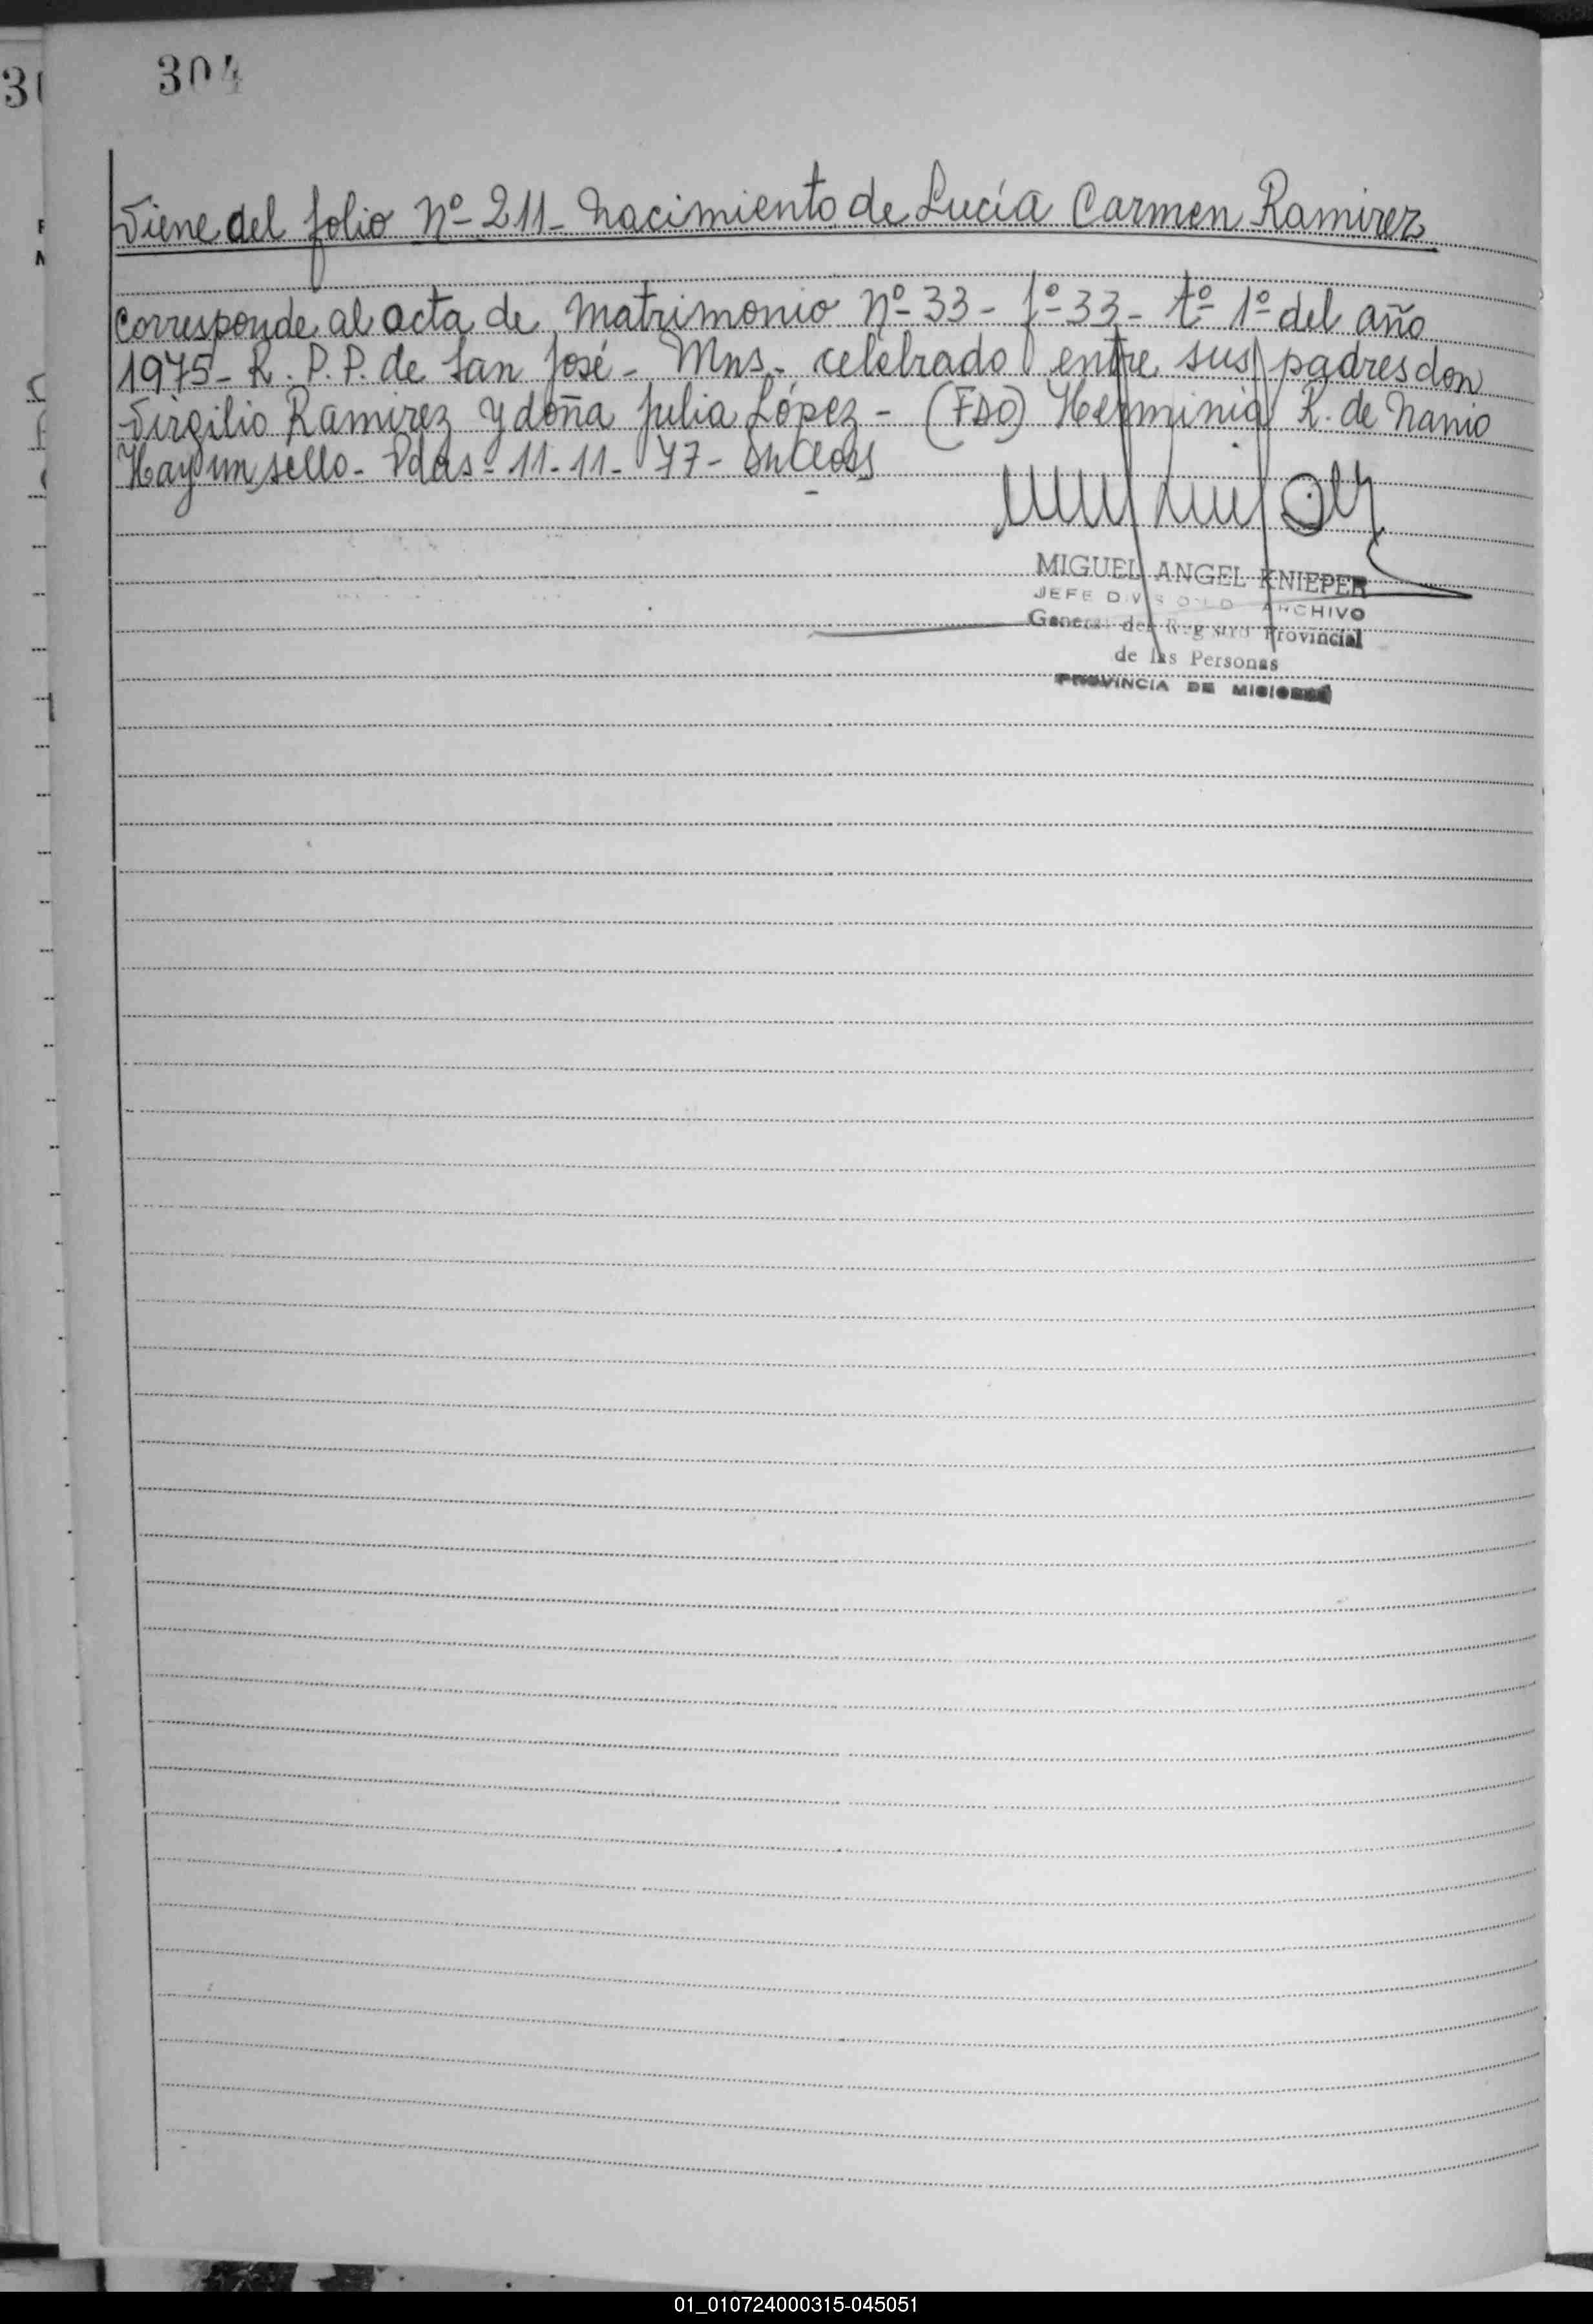 304
Viene del folio Nº 211- Nacimiento de Lucía Carmen Ramirez
Corresponde al acta de Matrimonio Nº 33- fº 33- tº 1º del año
1975- R. P. P. de San José- Mns- celebrado entre sus padres don
Virgilio Ramirez y doña Julia López- (FDO) Herminia R. de Nanio
Hay un sello- Pdas- 11-11-77-
MIGUEL ANGEL KNIEPER
JEFE DIVISION ARCHIVO
General del Registro Provincial
de las Personas
PROVINCIA DE MISIONES
01_010724000315-045051